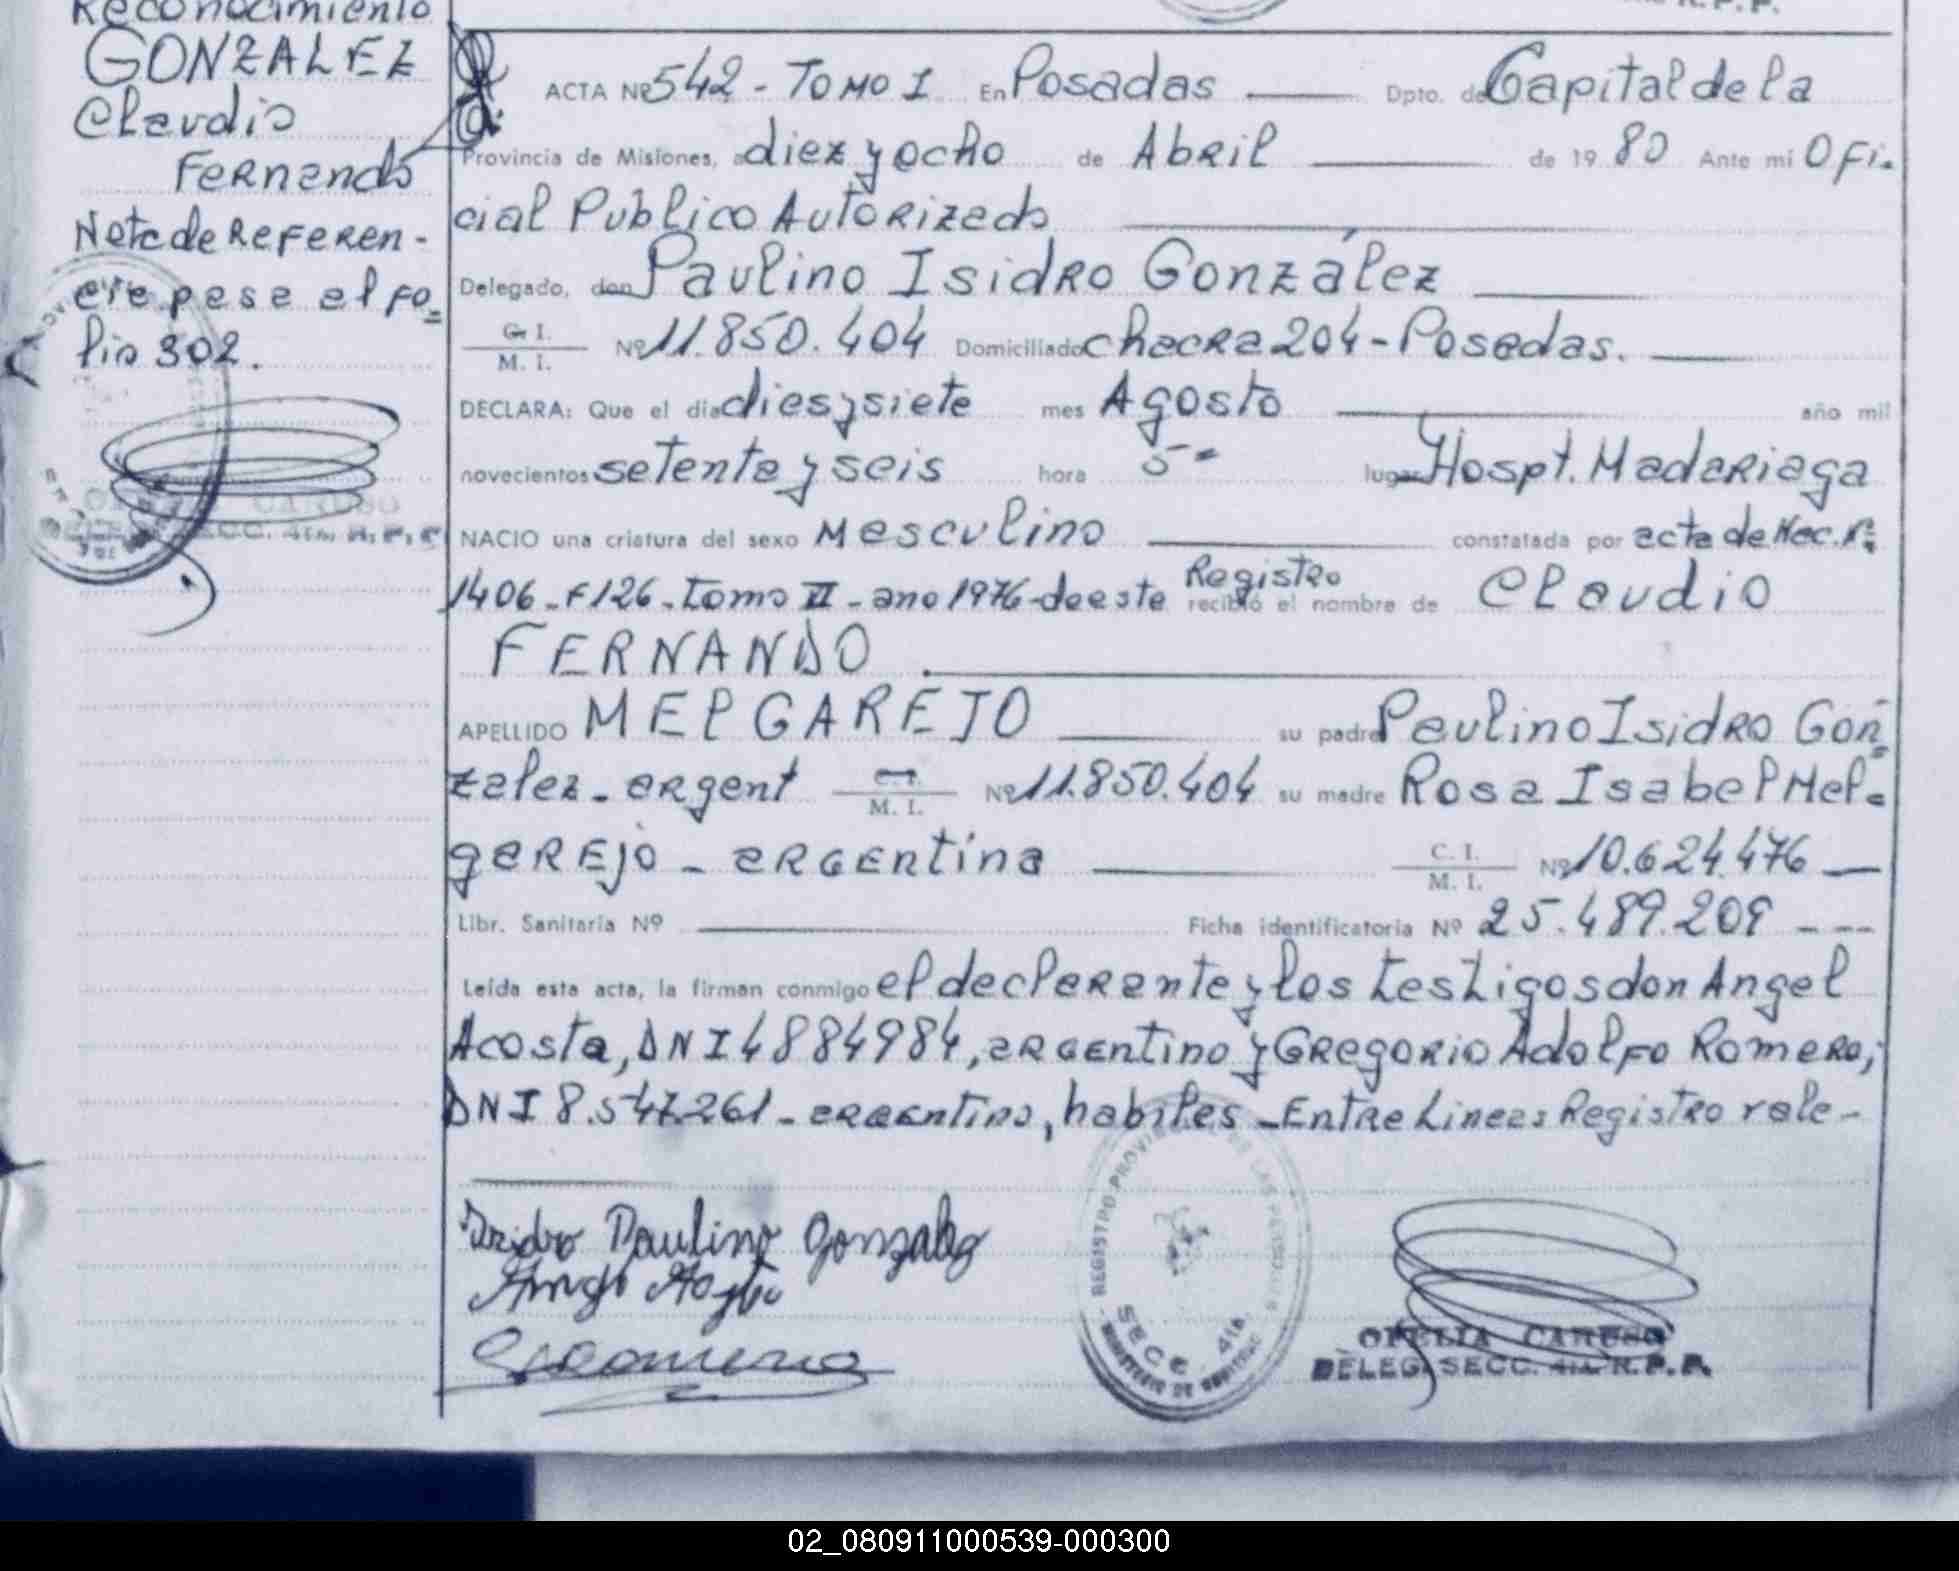 Reconocimiento
GONZALEZ
Claudio
Fernando
Nota de Referen-
cia pasa al fo=
lio 302.
ACTA Nº 542 - TOMO I En Posadas Dpto. de Capital de la
Provincia de Misiones, a diez y ocho de Abril de 19 80 Ante mi Ofi.
cial Publico Autorizado
Delegado, don Paulino Isidro González
C. I.
M. I. Nº 11.850.404 Domiciliado chacra 204 - Posadas.
DECLARA: Que el dia diesysiete mes Agosto año mil
novecientos setenta y seis hora 5 = lugar Hospt. Madariaga
NACIO una criatura del sexo Masculino constatada por acta de Nac. Nº
1406 - F 126 - Tomo II - ano 1976 - de este Registro recibió el nombre de Claudio
FERNANDO
APELLIDO MELGAREJO su padre Paulino Isidro Gon=
zalez - argent C. I.
M. I. Nº 11.850.404 su madre Rosa Isabel Mel=
garejo - argentina C. I.
M. I. Nº 10.624.476
Libr. Sanitaria Nº Ficha identificatoria Nº 25.489.209
Leída esta acta, la firman conmigo el declarante y los testigos don Angel
Acosta, DNI 4884984, argentino y Gregorio Adolfo Romero,
DNI 8.547.261 - argentino, habiles - Entre Lineas Registro vale -
Isidro Paulino Gonzalez
REGISTRO PROVINCIAL DE LAS PERSONAS
SECC. 4ta.
OFELIA CARUSO
DELEG. SECC. 4ta. R.P.P.
02_080911000539-000300